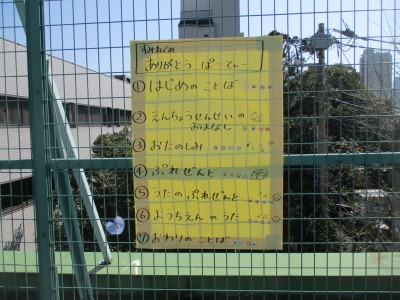 すみれぐみ
ありがとう ぱーてぃー
① はじめのことば
② えんちょうせんせいの
おはなし
③ おたのしみ
④ ぷれぜんと
⑤ うたのぷれぜんと
⑥ ようちえんのうた
⑦ おわりのことば